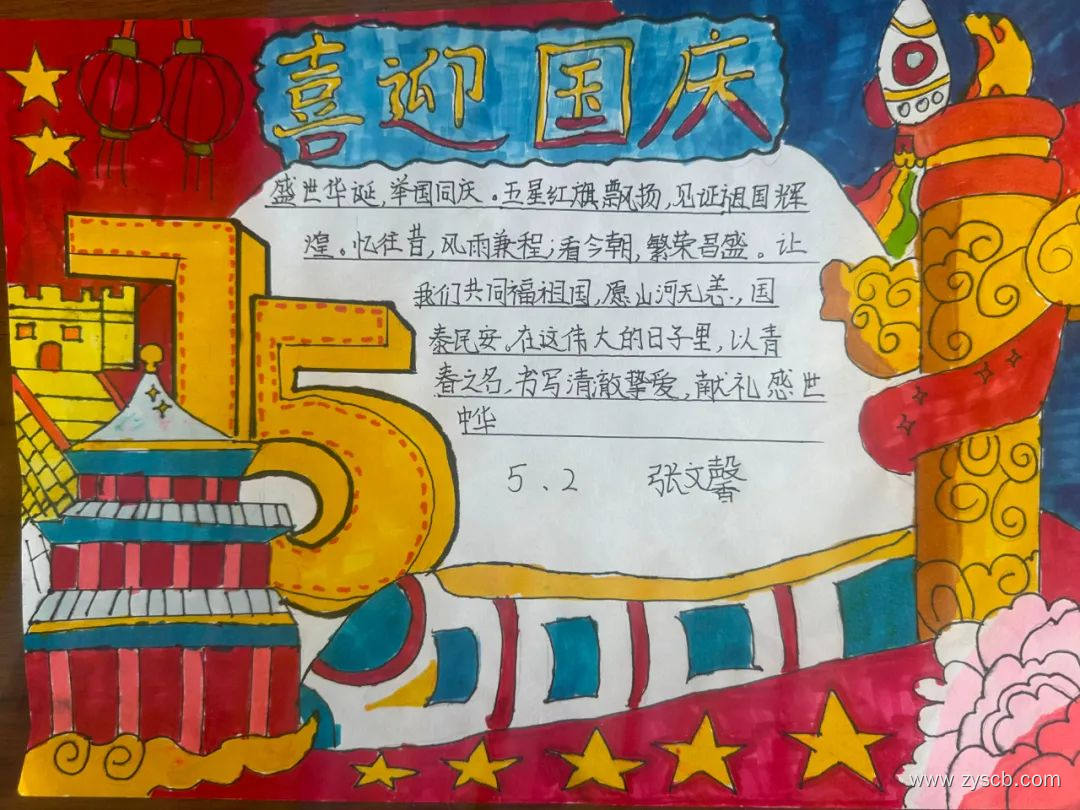 喜迎国庆
盛世华诞,举国同庆。五星红旗飘扬,见证祖国辉
煌。忆往昔,风雨兼程;看今朝,繁荣昌盛。让
我们共同福祖国,愿山河无恙,国
泰民安。在这伟大的日子里,以青
春之名,书写清澈挚爱,献礼盛世
中华
5、2 张文馨
75
www.zyscb.com